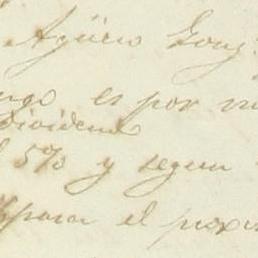 Agüero Gonz
es por
Dividendo
5% y segun
para el proxi